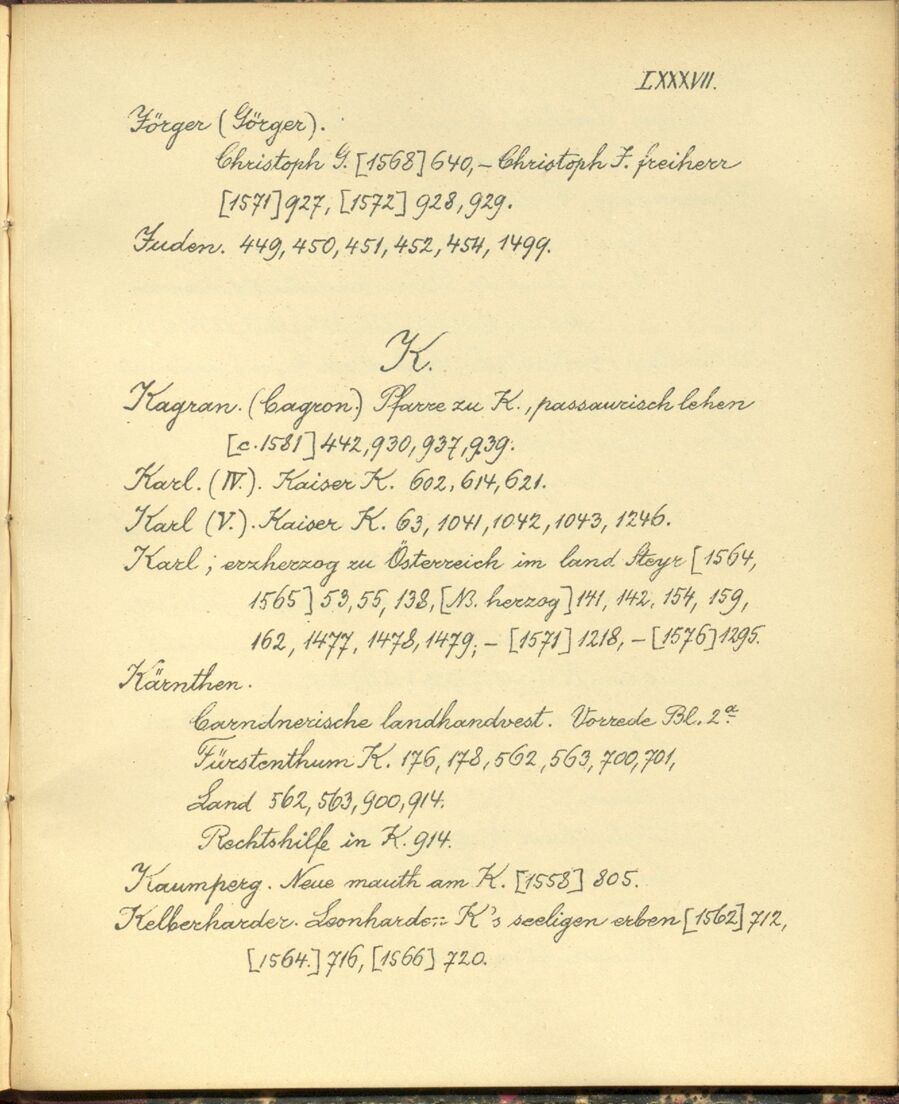 LXXXVII.
Jörger (Görger).
Christoph G. [1568] 640, – Christoph J. freiherr
[1571] 927, [1572] 928, 929.
Juden. 449, 450, 451, 452, 454, 1499.
K.
Kagran. (Cagron.) Pfarre zu K., passaurisch lehen
[c. 1581] 442, 930, 937, 939.
Karl. (IV.). Kaiser K. 602, 614, 621.
Karl (V.). Kaiser K. 63, 1041, 1042, 1043, 1246.
Karl; erzherzog zu Österreich im land Steyr [1564,
1565] 53, 55, 138, [NB. herzog] 141, 142, 154, 159,
162, 1477, 1478, 1479; – [1571] 1218, – [1576] 1295.
Kärnthen.
Carndnerische landhandvest. Vorrede Bl. 2a
Fürstenthum K. 176, 178, 562, 563, 700, 701,
Land 562, 563, 900, 914.
Rechtshilfe in K. 914.
Kaumperg. Neue mauth am K. [1558] 805.
Kelberharder. Leonhards K's seeligen erben [1562] 712,
[1564.] 716, [1566] 720.